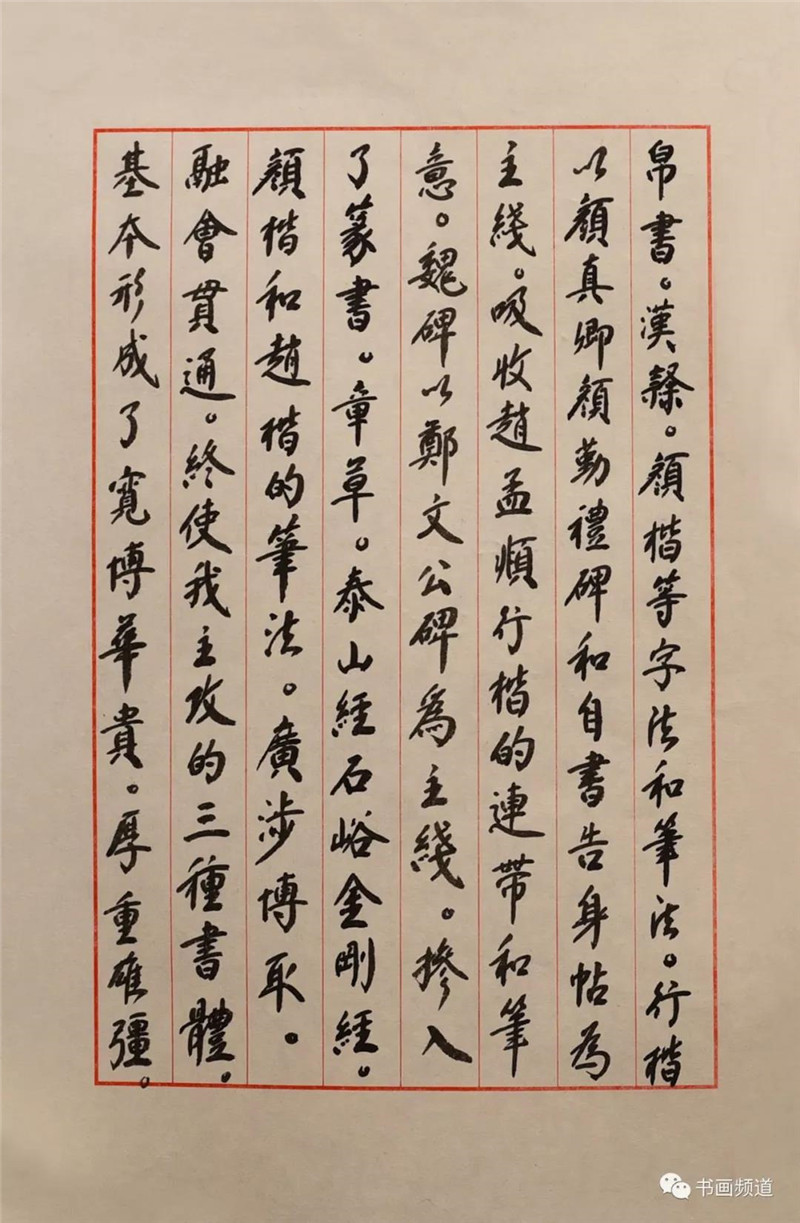 帛書。漢隸。顏楷等字法和筆法。行楷
以顏真卿顏勤禮碑和自書告身帖為
主綫。吸收趙孟頫行楷的連帶和筆
意。魏碑以鄭文公碑為主綫。摻入
了篆書。章草。泰山經石峪金剛經。
顏楷和趙楷的筆法。廣涉博取。
融會貫通。終使我主攻的三種書體。
基本形成了寬博華貴。厚重雄彊。
书画频道